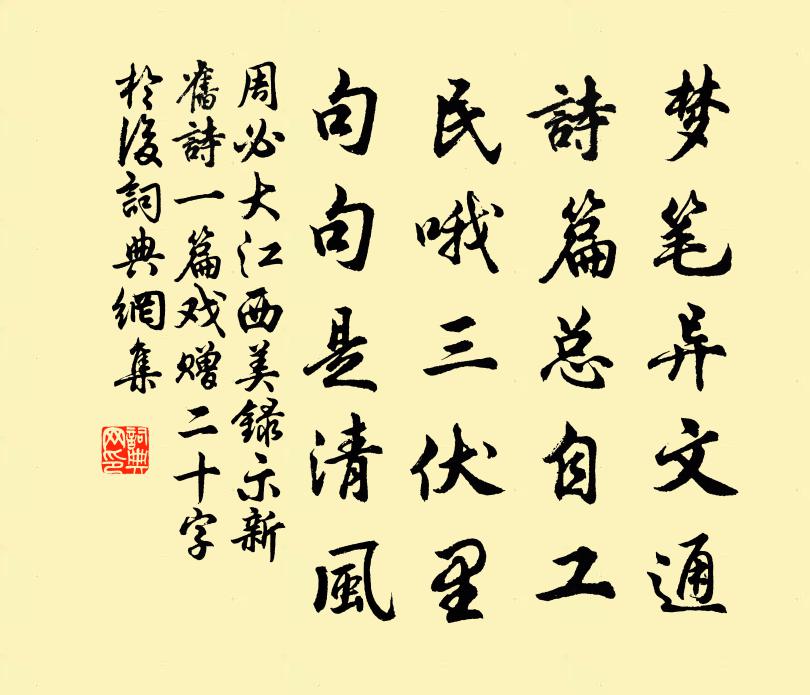 梦笔异文通
詩篇总自工
民哦三伏里
句句是清風
周必大江西美録示新
舊詩一篇戏赠二十字
於後詞典網集
詞典网印